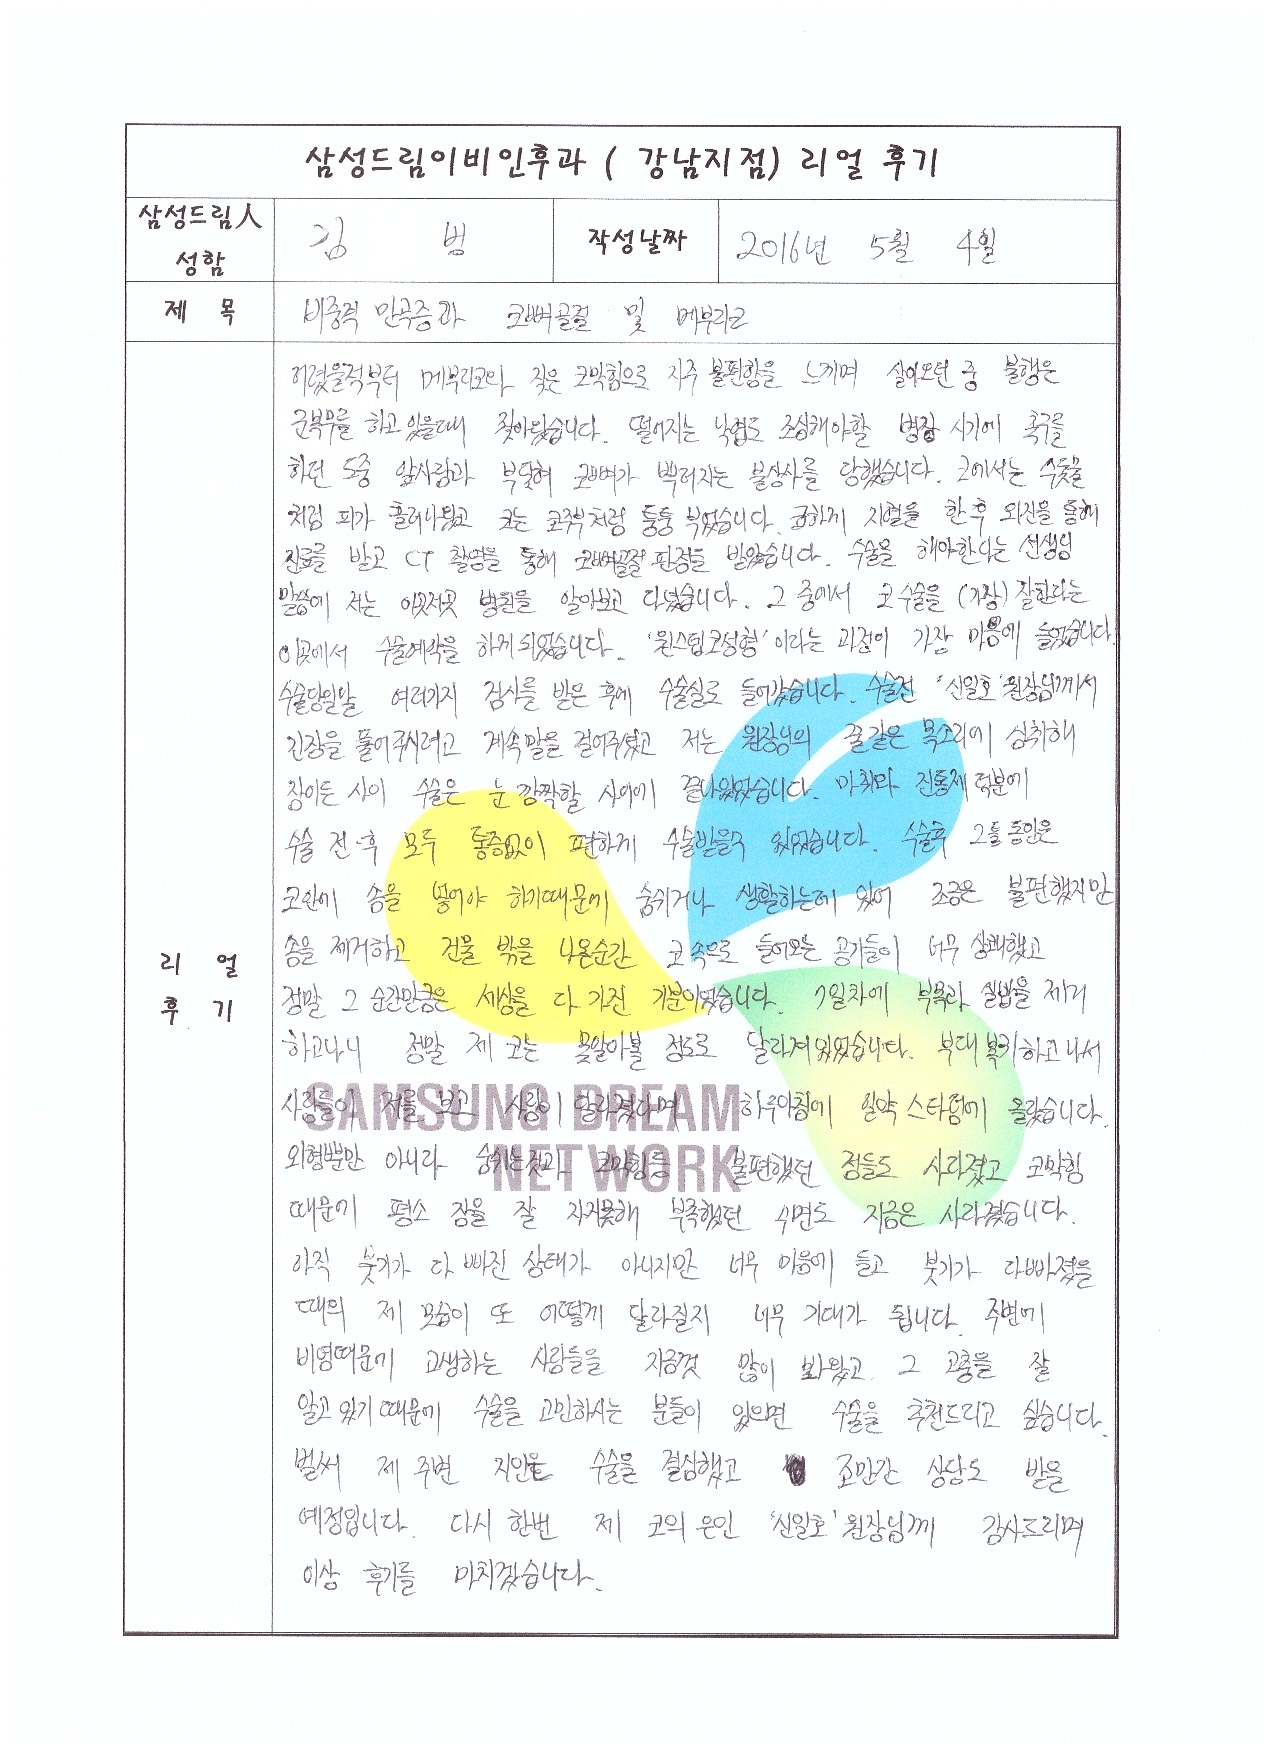 삼성드림이비인후과 ( 강남지점) 리얼 후기
삼성드림人
성함
김 범
작성날짜
2016년 5월 4일
제 목
비중격 만곡증과 코뼈골절 및 메부리코
리 얼
후 기
어렸을적부터 메부리코와 잦은 코막힘으로 자주 불편함을 느끼며 살아오던 중 불행은
군복무를 하고있을때 찾아왔습니다. 떨어지는 낙엽도 조심해야할 병장 시기에 족구를
하던 도중 앞사람과 부딪혀 코뼈가 뿌러지는 불상사를 당했습니다. 코에서는 수돗물
처럼 피가 흘러나왔고 코는 코주부처럼 퉁퉁 부었습니다. 급하게 지혈을 한후 외진을 통해
진료를 받고 CT 촬영을 통해 코뼈골절 판정을 받았습니다. 수술을 해야한다는 선생님
말씀에 저는 이곳저곳 병원을 알아보고 다녔습니다. 그 중에서 코수술을 (가장) 잘한다는
이곳에서 수술예약을 하게되었습니다. '원스텝코성형' 이라는 과정이 가장 마음에 들었습니다.
수술당일날 여러가지 검사를 받은 후에 수술실로 들어갔습니다. 수술전 '신일호'원장님께서
긴장을 풀어주시려고 계속말을 걸어주셨고 저는 원장님의 꿀같은 목소리에 심취해
잠이든 사이 수술은 눈 깜짝할 사이에 끝나있었습니다. 마취와 진통제 덕분에
수술 전·후 모두 통증없이 편하게 수술받을수 있었습니다. 수술후 2틀동안은
코안에 솜을 넣어야 하기때문에 숨쉬거나 생활하는데 있어 조금은 불편했지만
솜을 제거하고 건물 밖을 나온순간 코속으로 들어오는 공기들이 너무 상쾌했고
정말 그 순간만큼은 세상을 다 가진 기분이였습니다. 7일차에 부목과 실밥을 제거
하고나니 정말 제 코는 몰알아볼 정도로 달라져있었습니다. 부대복귀하고나서
사람들이 저를 보고 사람이 달라졌다며 하루아침에 일약 스타덤에 올랐습니다.
외형뿐만 아니라 숨쉬는것과 코막힘등 불편했던 점들도 사라졌고 코막힘
때문에 평소 잠을 잘 자지못해 부족했던 수면도 지금은 사라졌습니다.
아직 붓기가 다 빠진 상태가 아니지만 너무 마음에 들고 붓기가 다빠졌을
때의 제 모습이 또 어떻게 달라질지 너무 기대가 됩니다. 주변에
비염때문에 고생하는 사람들을 지금껏 많이 봐왔고 그 고충을 잘
알고 있기 때문에 수술을 고민하시는 분들이 있으면 수술을 추천드리고 싶습니다.
벌써 제 주변 지인도 수술을 결심했고 조만간 상담도 받을
예정입니다. 다시 한번 제 코의 은인 '신일호'원장님께 감사드리며
이상 후기를 마치겠습니다.
SAMSUNG DREAM
NETWORK